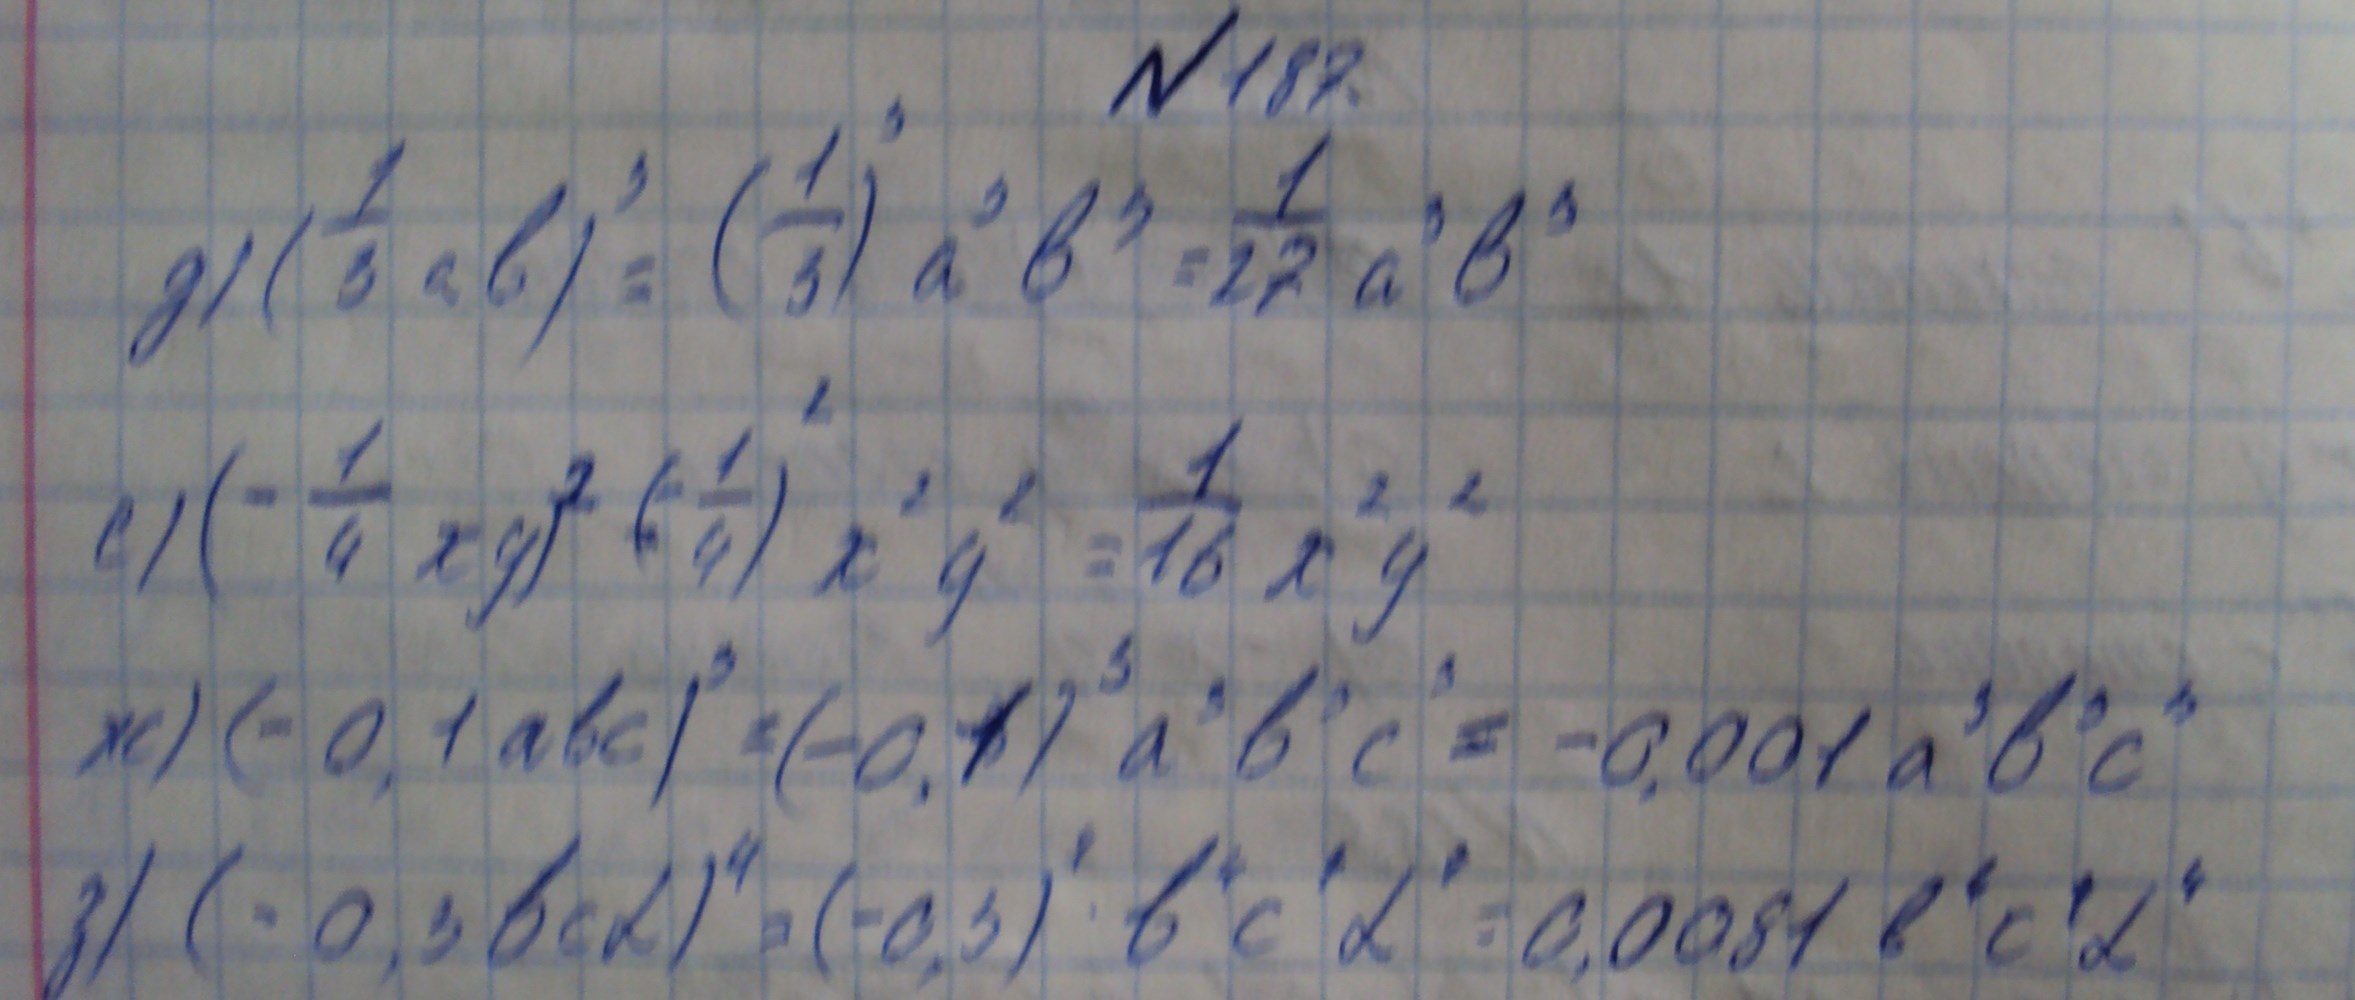 N 187.
д) (1/3 ab)³ = (1/3)³ a³ b³ = 1/27 a³ b³
е) (- 1/4 xy)² = (- 1/4)² x² y² = 1/16 x² y²
ж) (- 0,1 abc)³ = (-0,1)³ a³ b³ c³ = -0,001 a³ b³ c³
з) (- 0,3 bcd)⁴ = (-0,3)⁴ · b⁴ c⁴ d⁴ = 0,0081 b⁴ c⁴ d⁴